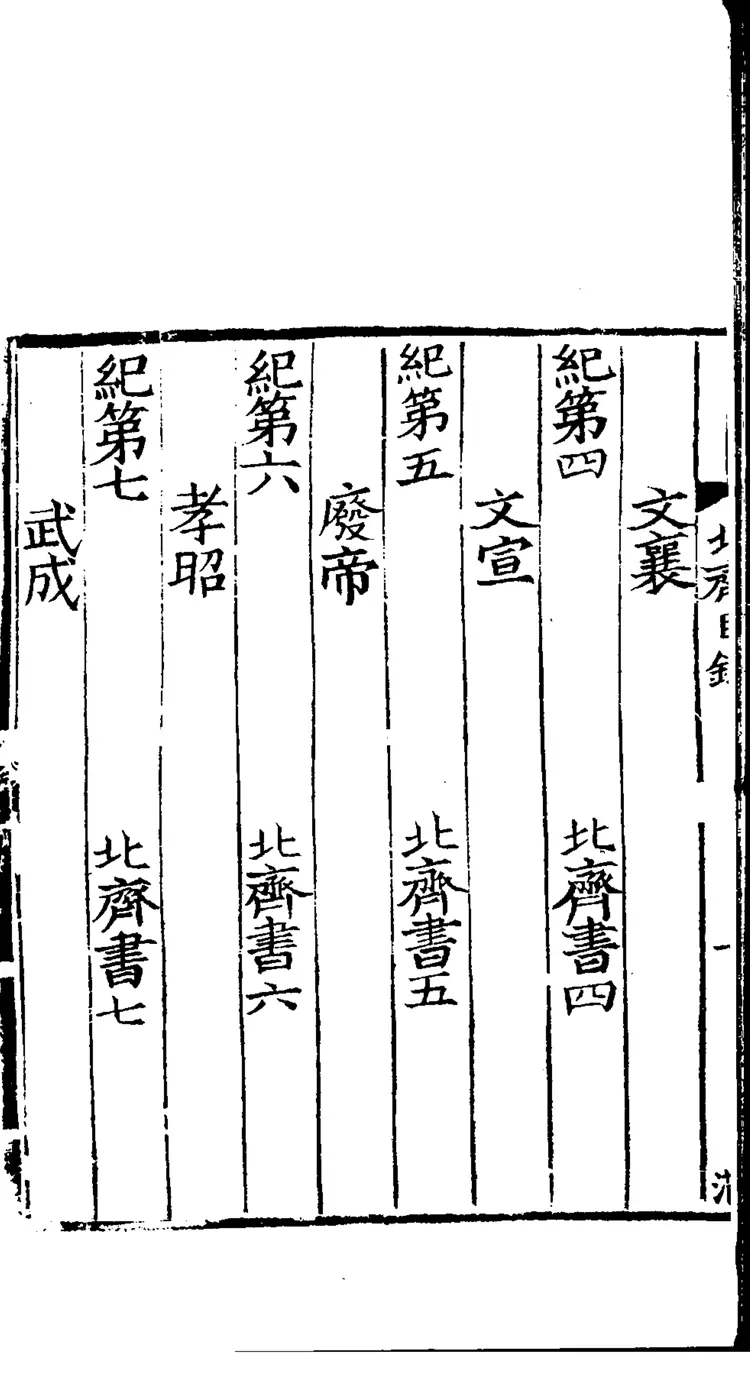 北齊目錄
一
文襄
紀第四 北齊書四
文宣
紀第五 北齊書五
廢帝
紀第六 北齊書六
孝昭
紀第七 北齊書七
武成